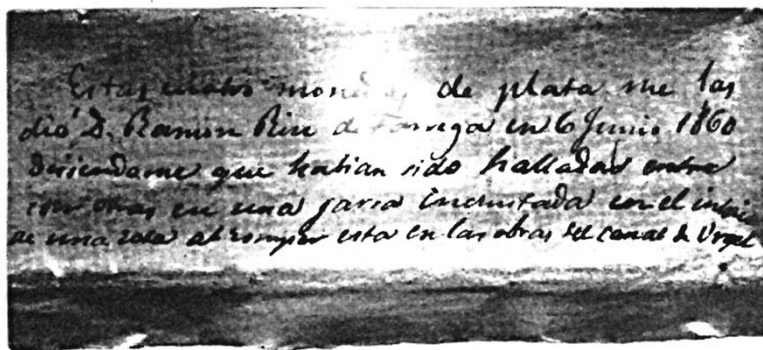 Estas cuatro monedas de plata me las
dió D. Ramon Riu de Tarrega en 6 Junio 1860
diciendome que habian sido halladas entre
otras en una jarra incrustada en el
de una roca al romper esta en las obras del Canal de Urgel